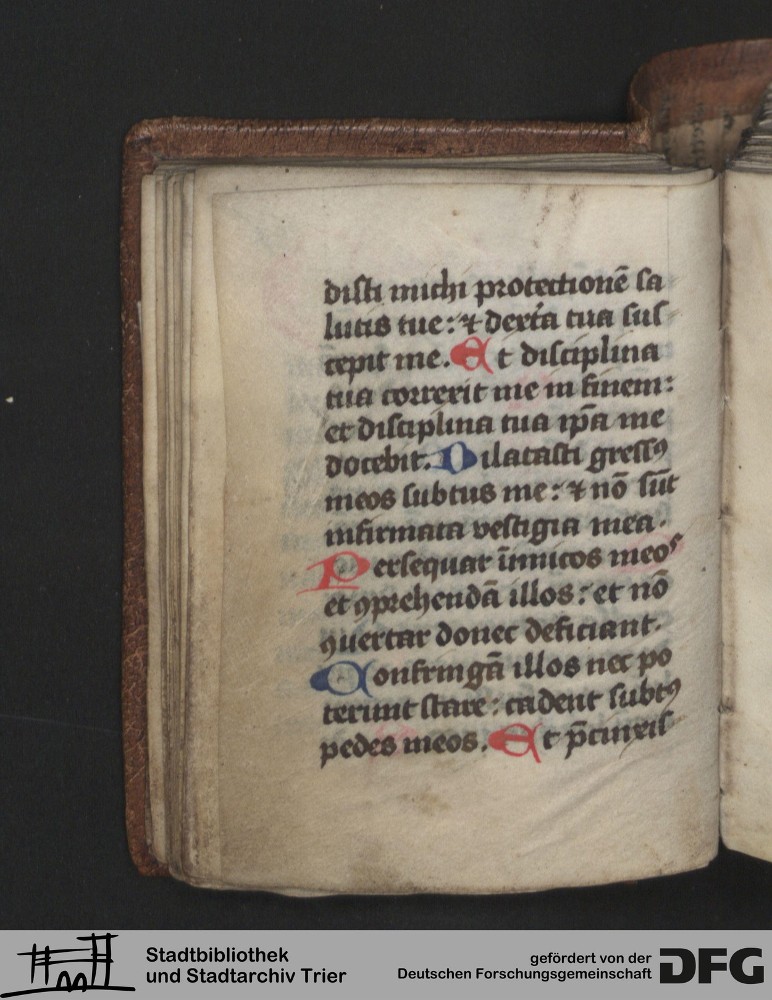 disti michi protectionē sa
lutis tue: ⁊ dext̄a tua sus
cepit me. Et disciplina
tua correxit me in finem:
et disciplina tua ip̄a me
docebit. Dilatasti gressꝰ
meos subtus me: ⁊ nō sūt
infirmata vestigia mea.
Persequar īimicos meos
et ꝯprehendā illos: et nō
ꝯuertar donec deficiant.
Confringā illos nec po
terunt stare: cadent subtꝰ
pedes meos. Et p̄cinxis
Stadtbibliothek
und Stadtarchiv Trier
gefördert von der
Deutschen Forschungsgemeinschaft
DFG